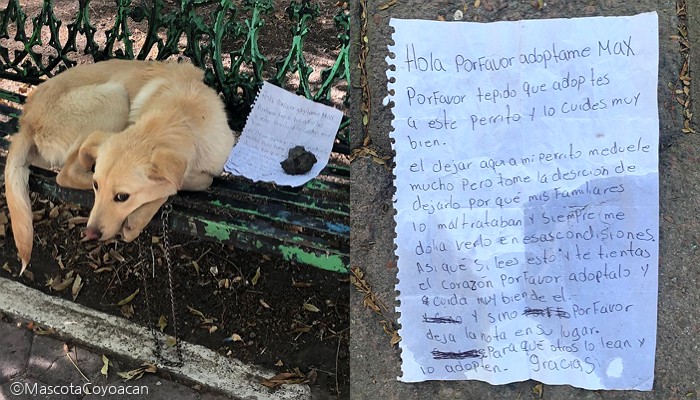 Hola PorFavor adoptame Max
PorFavor tepido que adoptes
a este perrito y lo cuides muy
bien.
el dejar aqui a mi perrito meduele
mucho Pero tome la desicion de
dejarlo por qué mis Familiares
lo maltrataban y siempre me
dolia verlo en esas condisiones.
Asi qué si lees esto y te tientas
el corazon porFavor adoptalo y
cuida muy bien de el.
y sino PorFavor
deja la nota en su lugar.
Para qué otros lo lean y
lo adopten. Gracias
©MascotaCoyoacan